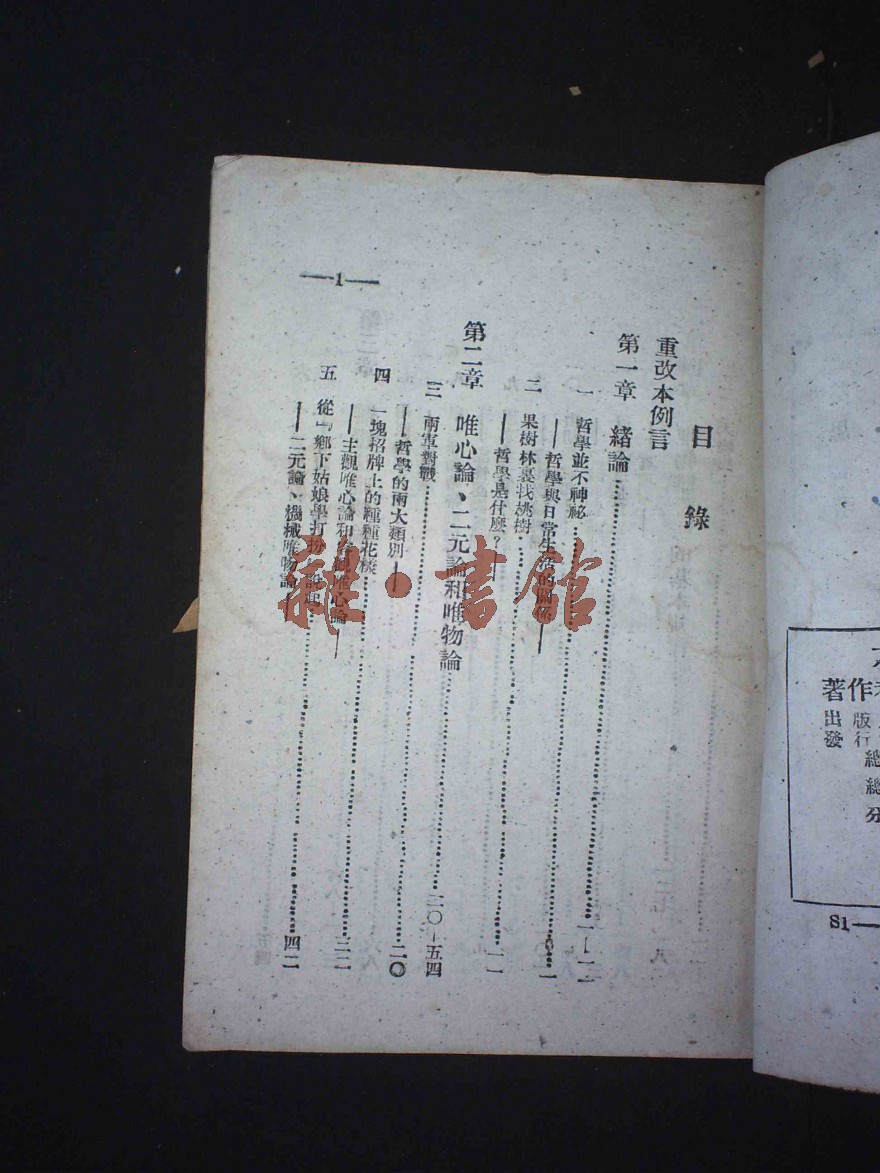 目錄
重改本例言
第一章 緒論
一 哲學並不神祕
——哲學與日常生活的關係——
二 果樹林裏找桃樹
——哲學是什麼？——
第二章 唯心論、二元論和唯物論 二〇—五四
三 兩軍對戰
——哲學的兩大類別—— 二〇
四 一塊招牌上的種種花樣
——主觀唯心論和客觀唯心論—— 二二
五 從「鄉下姑娘學打扮」說起
——二元論、機械唯物論 四二
—1—
雜·書館
著作
出版
發行
總
總
分
S1—